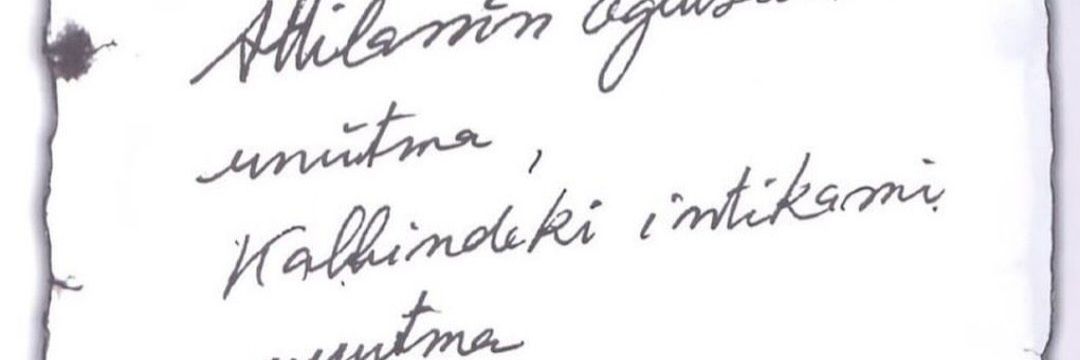 Attilanın oğlusun
unutma,
Kalbindeki intikami
unutma